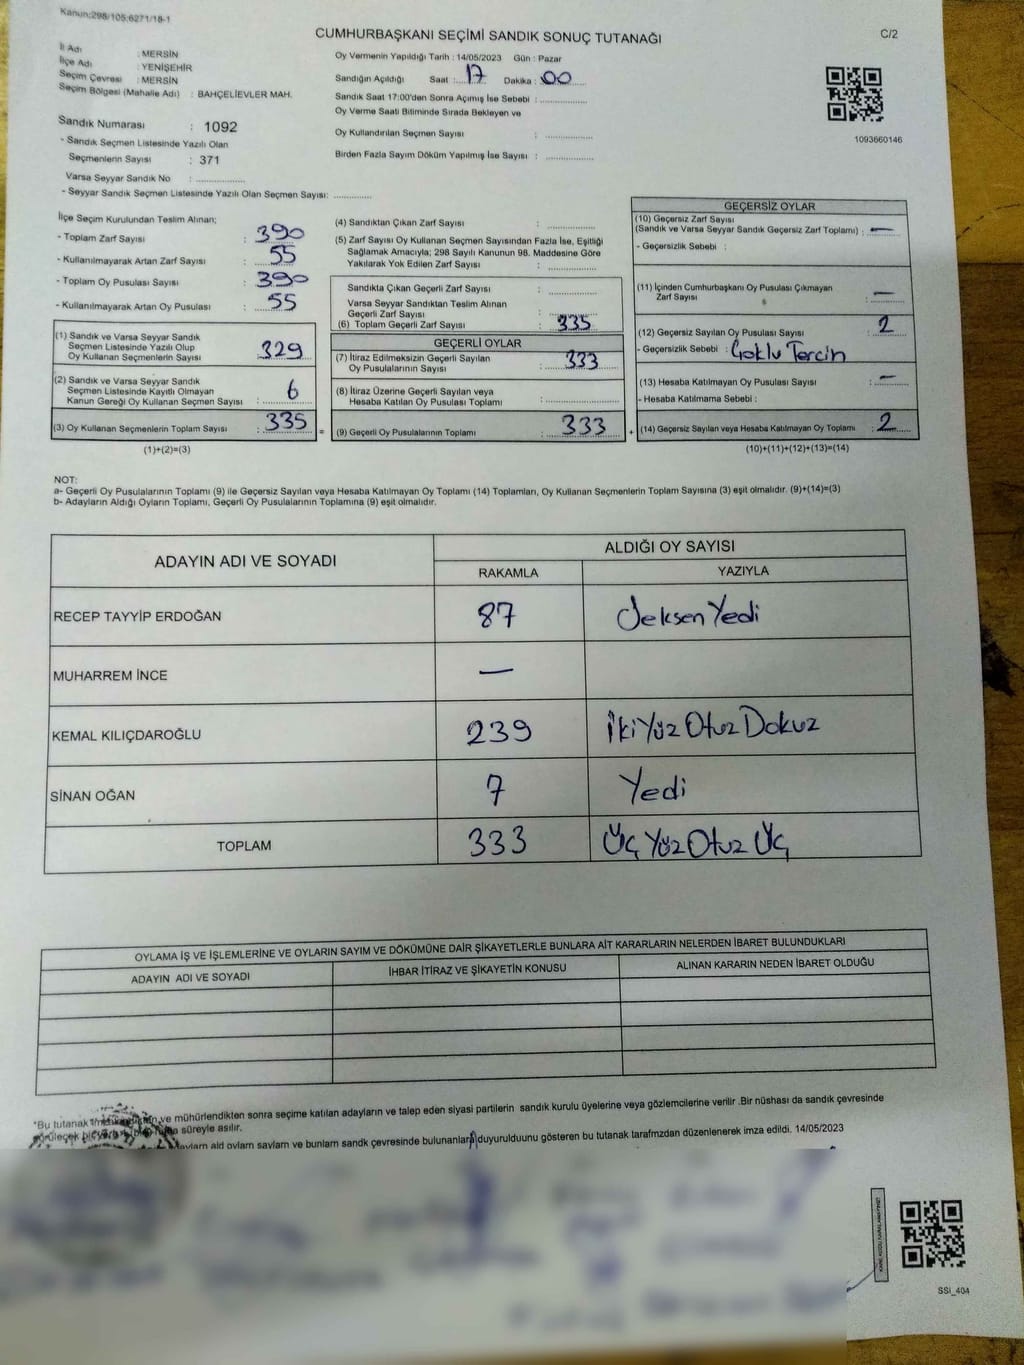 Kanun:298/105;6271/18-1
CUMHURBAŞKANI SEÇİMİ SANDIK SONUÇ TUTANAĞI
C/2
İl Adı : MERSİN
İlçe Adı : YENİŞEHİR
Seçim Çevresi : MERSİN
Seçim Bölgesi (Mahalle Adı) : BAHÇELİEVLER MAH.
Sandık Numarası : 1092
- Sandık Seçmen Listesinde Yazılı Olan
Seçmenlerin Sayısı : 371
Varsa Seyyar Sandık No : ..............
- Seyyar Sandık Seçmen Listesinde Yazılı Olan Seçmen Sayısı: ............
Oy Vermenin Yapıldığı Tarih : 14/05/2023 Gün : Pazar
Sandığın Açıldığı Saat : 17 Dakika : 00
Sandık Saat 17:00'den Sonra Açımış İse Sebebi : ..............
Oy Verme Saati Bitiminde Sırada Bekleyen ve
Oy Kullandırılan Seçmen Sayısı : ..............
Birden Fazla Sayım Döküm Yapılmış İse Sayısı : ..............
1093660146
İlçe Seçim Kurulundan Teslim Alınan;
- Toplam Zarf Sayısı : 390
- Kullanılmayarak Artan Zarf Sayısı : 55
- Toplam Oy Pusulası Sayısı : 390
- Kullanılmayarak Artan Oy Pusulası : 55
(1) Sandık ve Varsa Seyyar Sandık
Seçmen Listesinde Yazılı Olup
Oy Kullanan Seçmenlerin Sayısı : 329
(2) Sandık ve Varsa Seyyar Sandık
Seçmen Listesinde Kayıtlı Olmayan
Kanun Gereği Oy Kullanan Seçmen Sayısı : 6
(3) Oy Kullanan Seçmenlerin Toplam Sayısı : 335 =
(1)+(2)=(3)
(4) Sandıktan Çıkan Zarf Sayısı : ..............
(5) Zarf Sayısı Oy Kullanan Seçmen Sayısından Fazla İse, Eşitliği
Sağlamak Amacıyla; 298 Sayılı Kanunun 98. Maddesine Göre
Yakılarak Yok Edilen Zarf Sayısı : ..............
Sandıkta Çıkan Geçerli Zarf Sayısı : ..............
Varsa Seyyar Sandıktan Teslim Alınan
Geçerli Zarf Sayısı : ..............
(6) Toplam Geçerli Zarf Sayısı : 335
GEÇERLİ OYLAR
(7) İtiraz Edilmeksizin Geçerli Sayılan
Oy Pusulalarının Sayısı : 333
(8) İtiraz Üzerine Geçerli Sayılan veya
Hesaba Katılan Oy Pusulası Toplamı : ..............
(9) Geçerli Oy Pusulalarının Toplamı : 333 +
GEÇERSİZ OYLAR
(10) Geçersiz Zarf Sayısı
(Sandık ve Varsa Seyyar Sandık Geçersiz Zarf Toplamı) : —
- Geçersizlik Sebebi :
(11) İçinden Cumhurbaşkanı Oy Pusulası Çıkmayan
Zarf Sayısı : —
(12) Geçersiz Sayılan Oy Pusulası Sayısı : 2
- Geçersizlik Sebebi : Çoklu Tercin
(13) Hesaba Katılmayan Oy Pusulası Sayısı : —
- Hesaba Katılmama Sebebi :
(14) Geçersiz Sayılan veya Hesaba Katılmayan Oy Toplamı : 2
(10)+(11)+(12)+(13)=(14)
NOT:
a- Geçerli Oy Pusulalarının Toplamı (9) ile Geçersiz Sayılan veya Hesaba Katılmayan Oy Toplamı (14) Toplamları, Oy Kullanan Seçmenlerin Toplam Sayısına (3) eşit olmalıdır. (9)+(14)=(3)
b- Adayların Aldığı Oyların Toplamı, Geçerli Oy Pusulalarının Toplamına (9) eşit olmalıdır.
ADAYIN ADI VE SOYADI
ALDIĞI OY SAYISI
RAKAMLA YAZIYLA
RECEP TAYYİP ERDOĞAN 87 Seksen Yedi
MUHARREM İNCE —
KEMAL KILIÇDAROĞLU 239 İki Yüz Otuz Dokuz
SİNAN OĞAN 7 Yedi
TOPLAM 333 Üç Yüz Otuz Üç
OYLAMA İŞ VE İŞLEMLERİNE VE OYLARIN SAYIM VE DÖKÜMÜNE DAİR ŞİKAYETLERLE BUNLARA AİT KARARLARIN NELERDEN İBARET BULUNDUKLARI
ADAYIN ADI VE SOYADI İHBAR İTİRAZ VE ŞİKAYETİN KONUSU ALINAN KARARIN NEDEN İBARET OLDUĞU
*Bu tutanak ve mühürlendikten sonra seçime katılan adayların ve talep eden siyasi partilerin sandık kurulu üyelerine veya gözlemcilerine verilir .Bir nüshası da sandık çevresinde
süreyle asılır.
ald oyların sayların ve bunların sandk çevresinde bulunanlara duyurulduunu gösteren bu tutanak tarafmzdan düzenlenerek imza edildi. 14/05/2023
SSİ_404